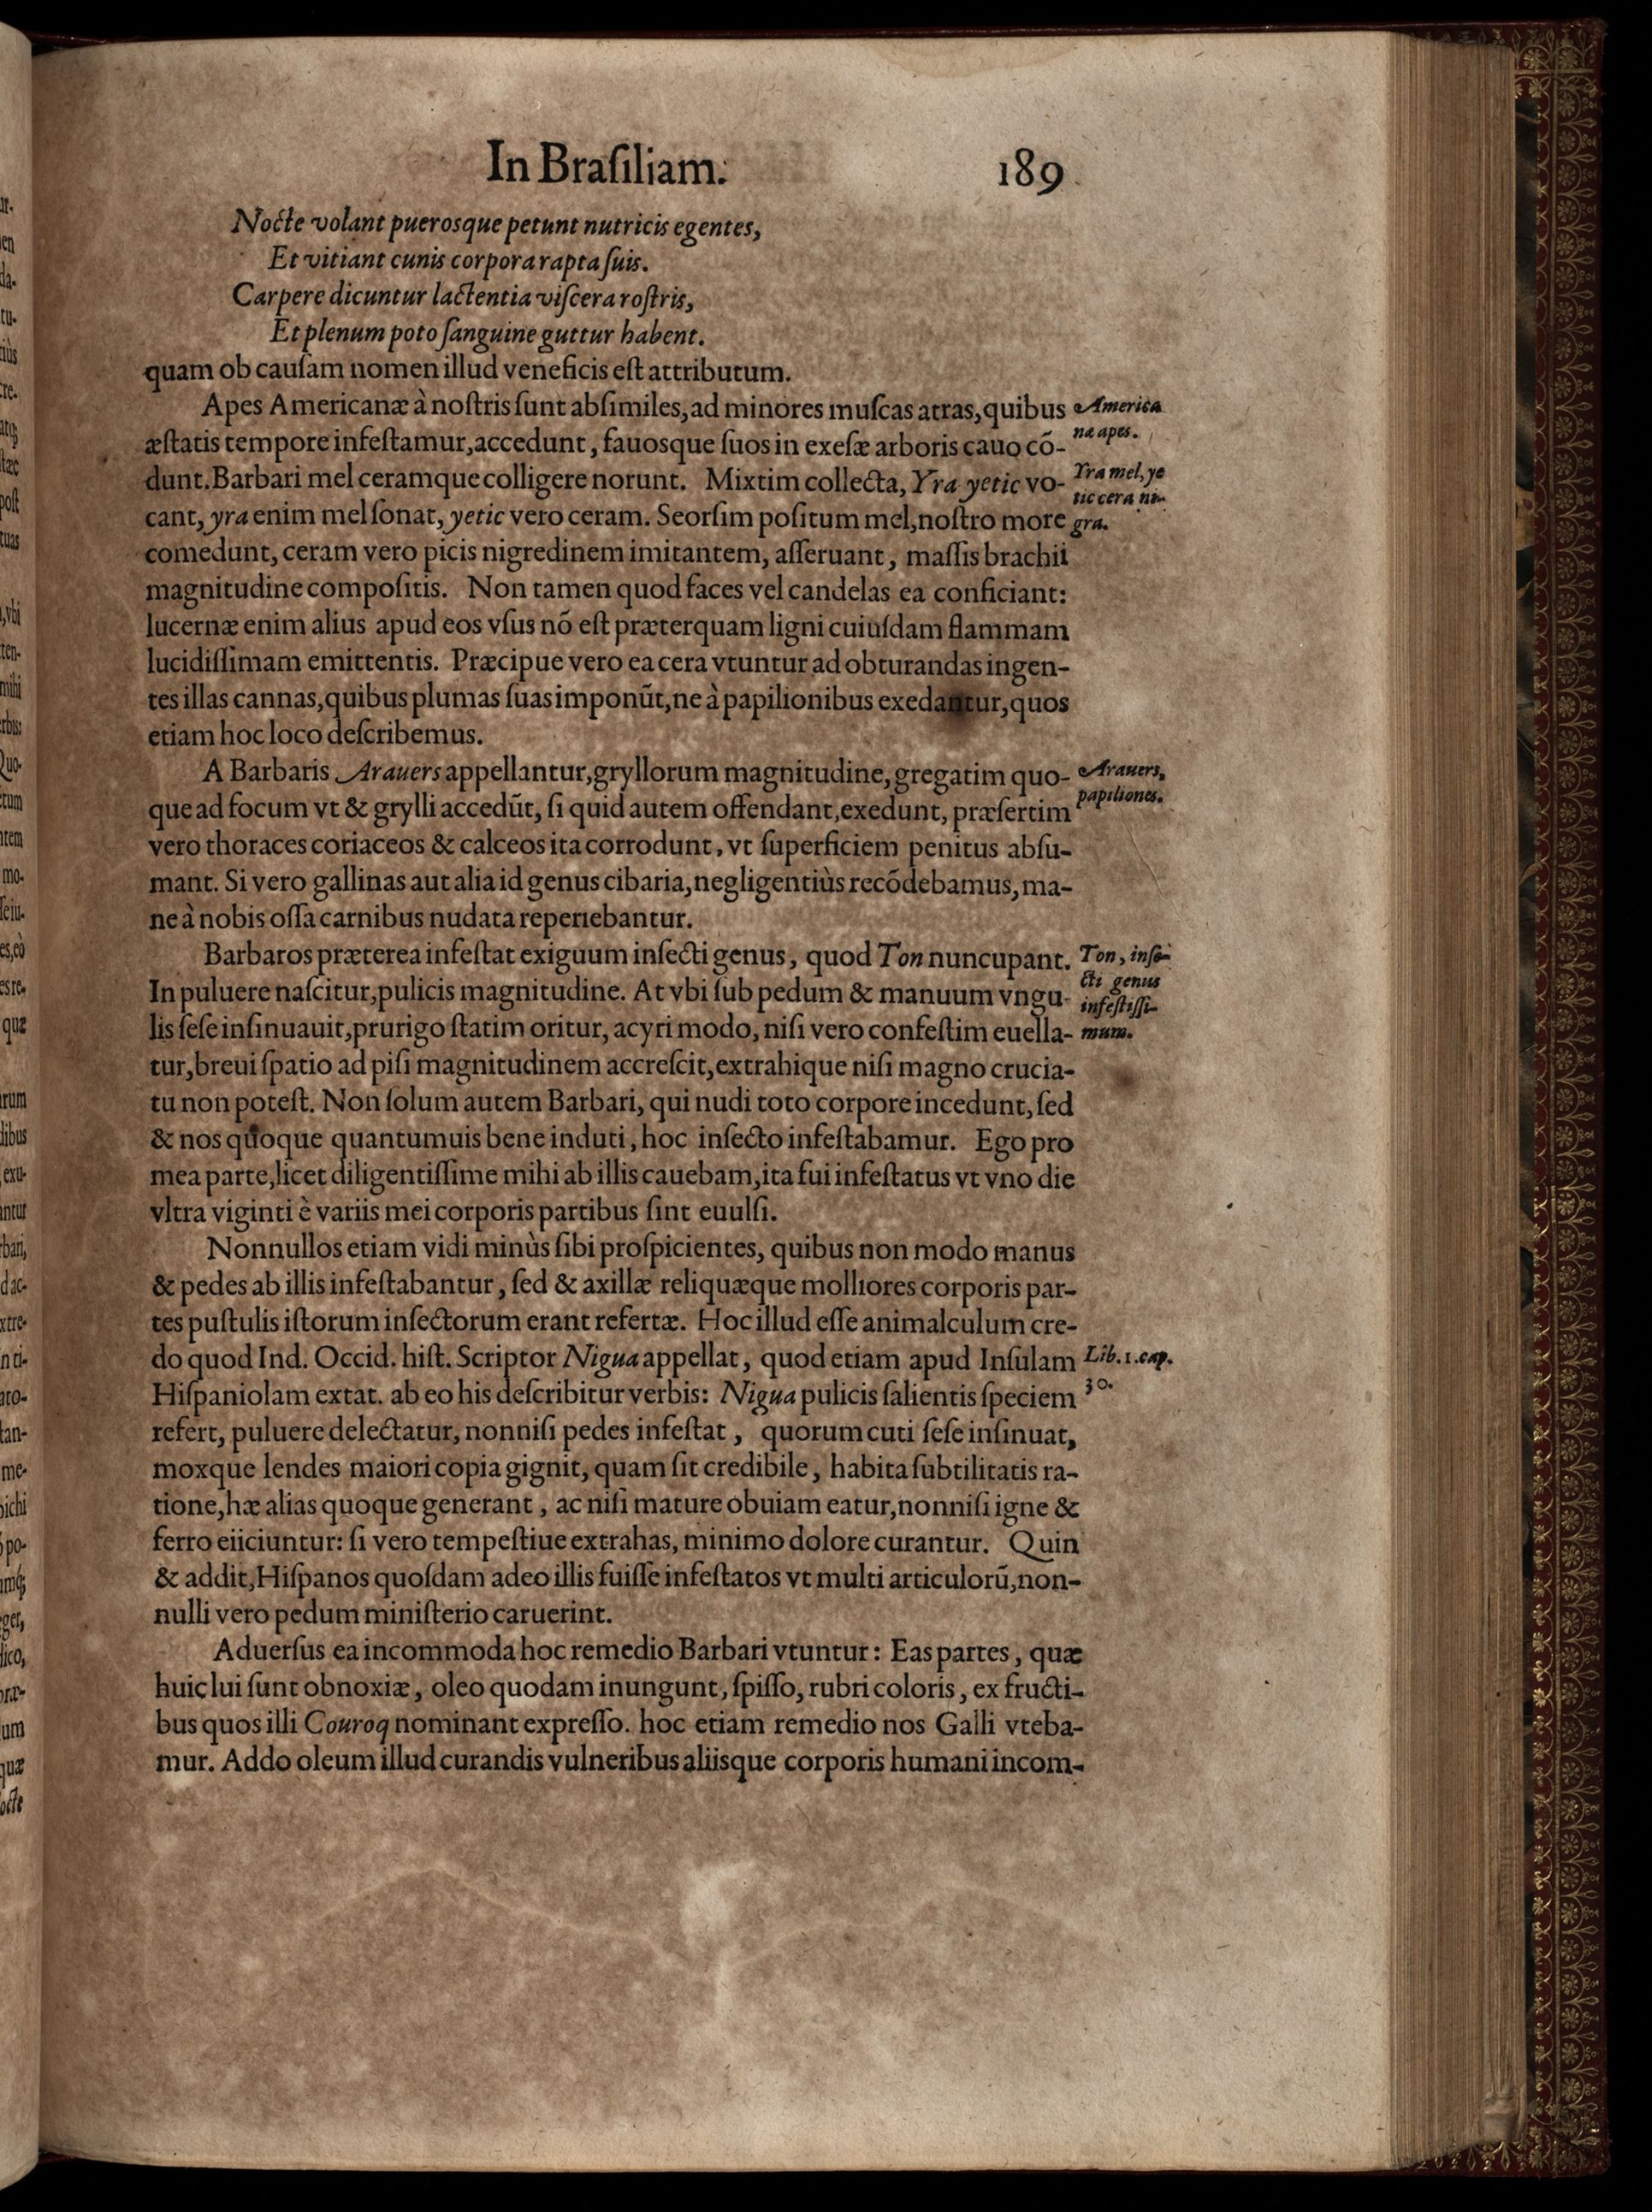 In Braſiliam. 189
Nocte volant puerosque petunt nutricis egentes,
Et vitiant cunis corpora rapta ſuis.
Carpere dicuntur lactentia viſcera roſtris,
Et plenum poto ſanguine guttur habent.
quam ob cauſam nomen illud veneficis eſt attributum.
Apes Americanæ à noſtris ſunt abſimiles, ad minores muſcas atras, quibus
æſtatis tempore infeſtamur, accedunt, fauosque ſuos in exeſæ arboris cauo cõ-
dunt. Barbari mel ceramque colligere norunt. Mixtim collecta, Yra yetic vo-
cant, yra enim mel ſonat, yetic vero ceram. Seorſim poſitum mel, noſtro more
comedunt, ceram vero picis nigredinem imitantem, aſſeruant, maſſis brachii
magnitudine compoſitis. Non tamen quod faces vel candelas ea conficiant:
lucernæ enim alius apud eos vſus nõ eſt præterquam ligni cuiuſdam flammam
lucidiſſimam emittentis. Præcipue vero ea cera vtuntur ad obturandas ingen-
tes illas cannas, quibus plumas ſuas imponũt, ne à papilionibus exedantur, quos
etiam hoc loco deſcribemus.
A Barbaris Arauers appellantur, gryllorum magnitudine, gregatim quo-
que ad focum vt & grylli accedũt, ſi quid autem offendant, exedunt, præſertim
vero thoraces coriaceos & calceos ita corrodunt, vt ſuperficiem penitus abſu-
mant. Si vero gallinas aut alia id genus cibaria, negligentiùs recõdebamus, ma-
ne à nobis oſſa carnibus nudata reperiebantur.
Barbaros præterea infeſtat exiguum inſecti genus, quod Ton nuncupant.
In puluere naſcitur, pulicis magnitudine. At vbi ſub pedum & manuum vngu-
lis ſeſe inſinuauit, prurigo ſtatim oritur, acyri modo, niſi vero confeſtim euella-
tur, breui ſpatio ad piſi magnitudinem accreſcit, extrahique niſi magno crucia-
tu non poteſt. Non ſolum autem Barbari, qui nudi toto corpore incedunt, ſed
& nos quoque quantumuis bene induti, hoc inſecto infeſtabamur. Ego pro
mea parte, licet diligentiſſime mihi ab illis cauebam, ita fui infeſtatus vt vno die
vltra viginti è variis mei corporis partibus ſint euulſi.
Nonnullos etiam vidi minùs ſibi proſpicientes, quibus non modo manus
& pedes ab illis infeſtabantur, ſed & axillæ reliquæque molliores corporis par-
tes puſtulis iſtorum inſectorum erant refertæ. Hoc illud eſſe animalculum cre-
do quod Ind. Occid. hiſt. Scriptor Nigua appellat, quod etiam apud Inſulam
Hiſpaniolam extat. ab eo his deſcribitur verbis: Nigua pulicis ſalientis ſpeciem
refert, puluere delectatur, nonniſi pedes infeſtat, quorum cuti ſeſe inſinuat,
moxque lendes maiori copia gignit, quam ſit credibile, habita ſubtilitatis ra-
tione, hæ alias quoque generant, ac niſi mature obuiam eatur, nonniſi igne &
ferro eiiciuntur: ſi vero tempeſtiue extrahas, minimo dolore curantur. Quin
& addit, Hiſpanos quoſdam adeo illis fuiſſe infeſtatos vt multi articulorũ, non-
nulli vero pedum miniſterio caruerint.
Aduerſus ea incommoda hoc remedio Barbari vtuntur: Eas partes, quæ
huic lui ſunt obnoxiæ, oleo quodam inungunt, ſpiſſo, rubri coloris, ex fructi-
bus quos illi Couroq nominant expreſſo. hoc etiam remedio nos Galli vteba-
mur. Addo oleum illud curandis vulneribus aliisque corporis humani incom-
America
næ apes.
Yra mel, ye
tic cera ni-
gra.
Arauers,
papiliones.
Ton, inſe-
cti genus
infeſtiſſi-
mum.
Lib. 1. cap.
30.